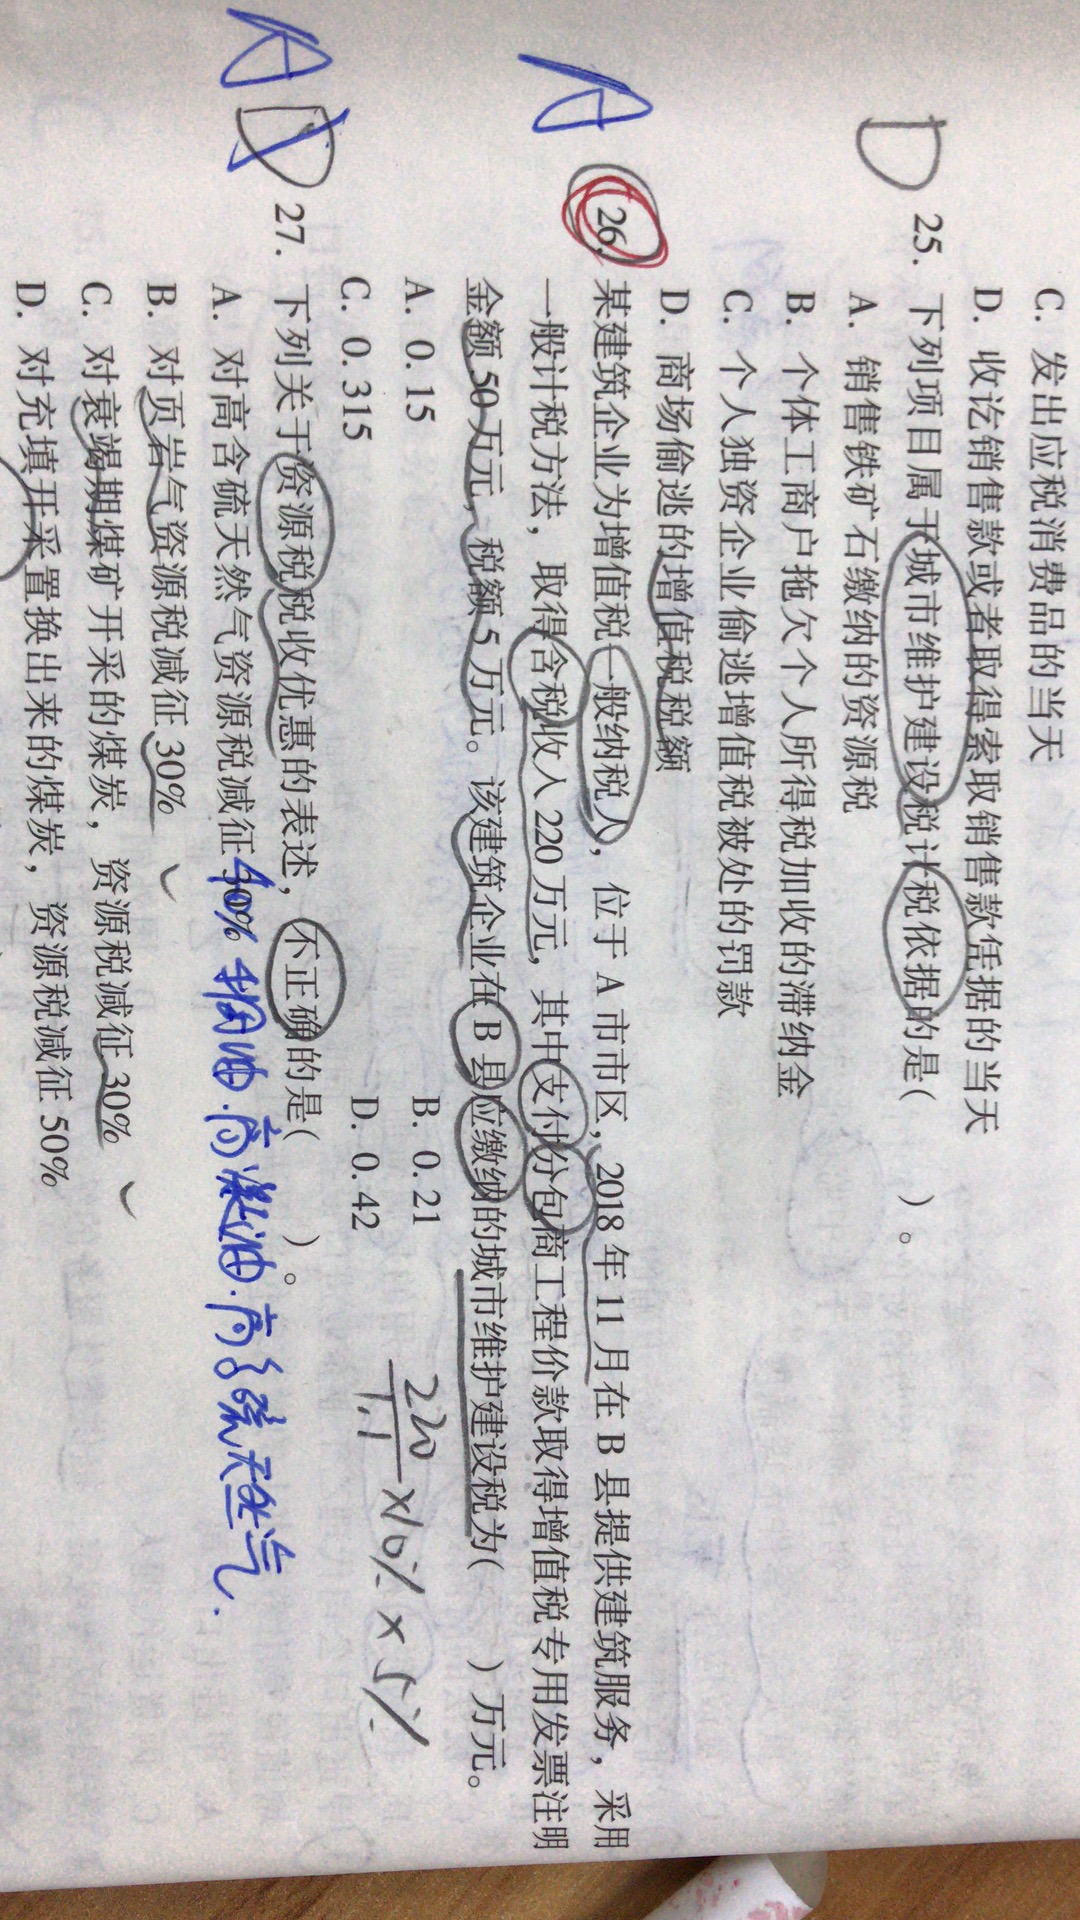 C. 发出应税消费品的当天
D. 收讫销售款或者取得索取销售款凭据的当天
D 25. 下列项目属于城市维护建设税计税依据的是( )。
A. 销售铁矿石缴纳的资源税
B. 个体工商户拖欠个人所得税加收的滞纳金
C. 个人独资企业偷逃增值税被处的罚款
D. 商场偷逃的增值税税额
A 26. 某建筑企业为增值税一般纳税人，位于 A 市市区，2018 年 11 月在 B 县提供建筑服务，采用
一般计税方法，取得含税收入 220 万元，其中支付分包商工程价款取得增值税专用发票注明
金额 50 万元，税额 5 万元。该建筑企业在 B 县应缴纳的城市维护建设税为( )万元。
A. 0.15 B. 0.21
220/1.1 ×10% × 5%
C. 0.315 D. 0.42
A D 27. 下列关于资源税税收优惠的表述，不正确的是( )。
A. 对高含硫天然气资源税减征 30% 40% 稠油.高凝油.高含硫天然气.
B. 对页岩气资源税减征 30% ✓
C. 对衰竭期煤矿开采的煤炭，资源税减征 30% ✓
D. 对充填开采置换出来的煤炭，资源税减征 50%